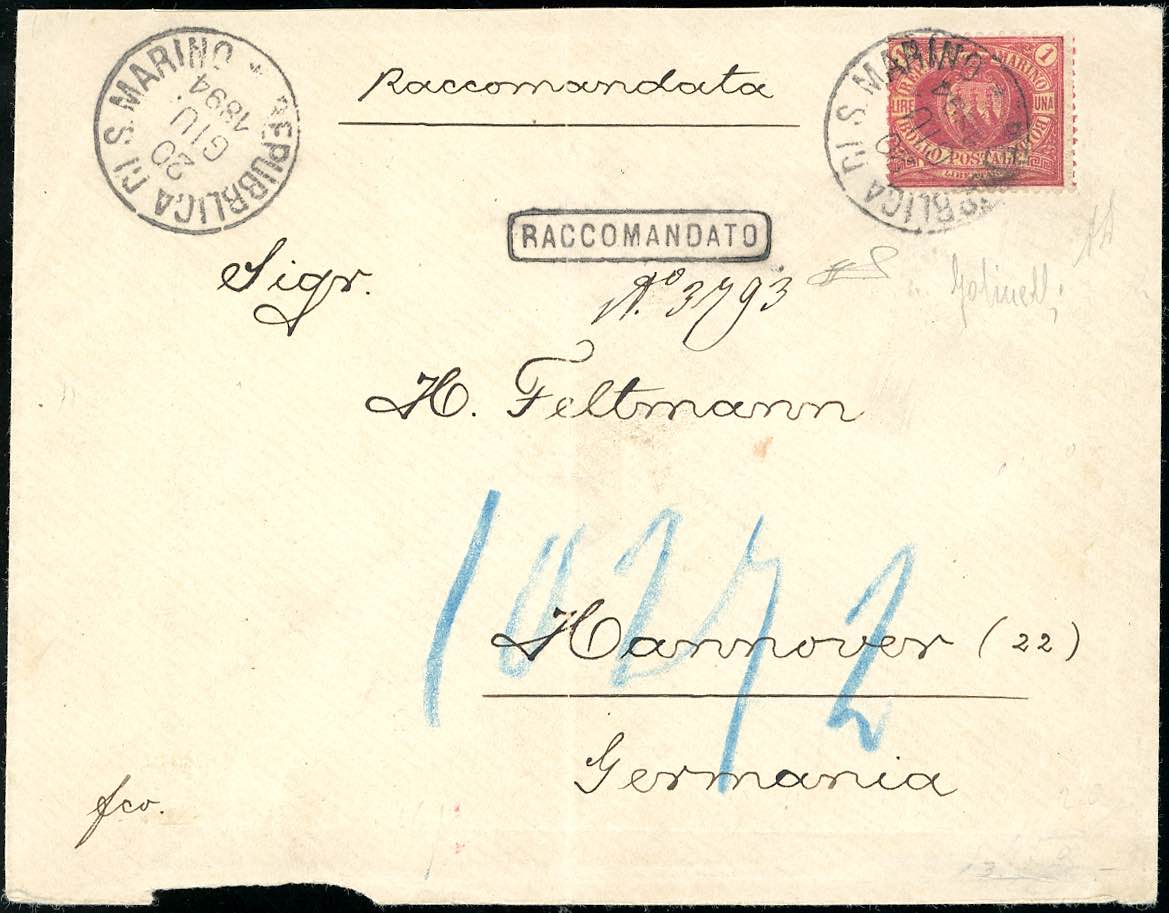 REPUBBLICA DI S. MARINO
20
GIU.
1894
Raccomandata
1 1
MARINO
LIRE UNA
BOLLO POSTALE
REPUBBLICA DI S. MARINO
RACCOMANDATO
No 3793
Sigr.
H. Feltmann
10272
Hannover (22)
Germania
fco.